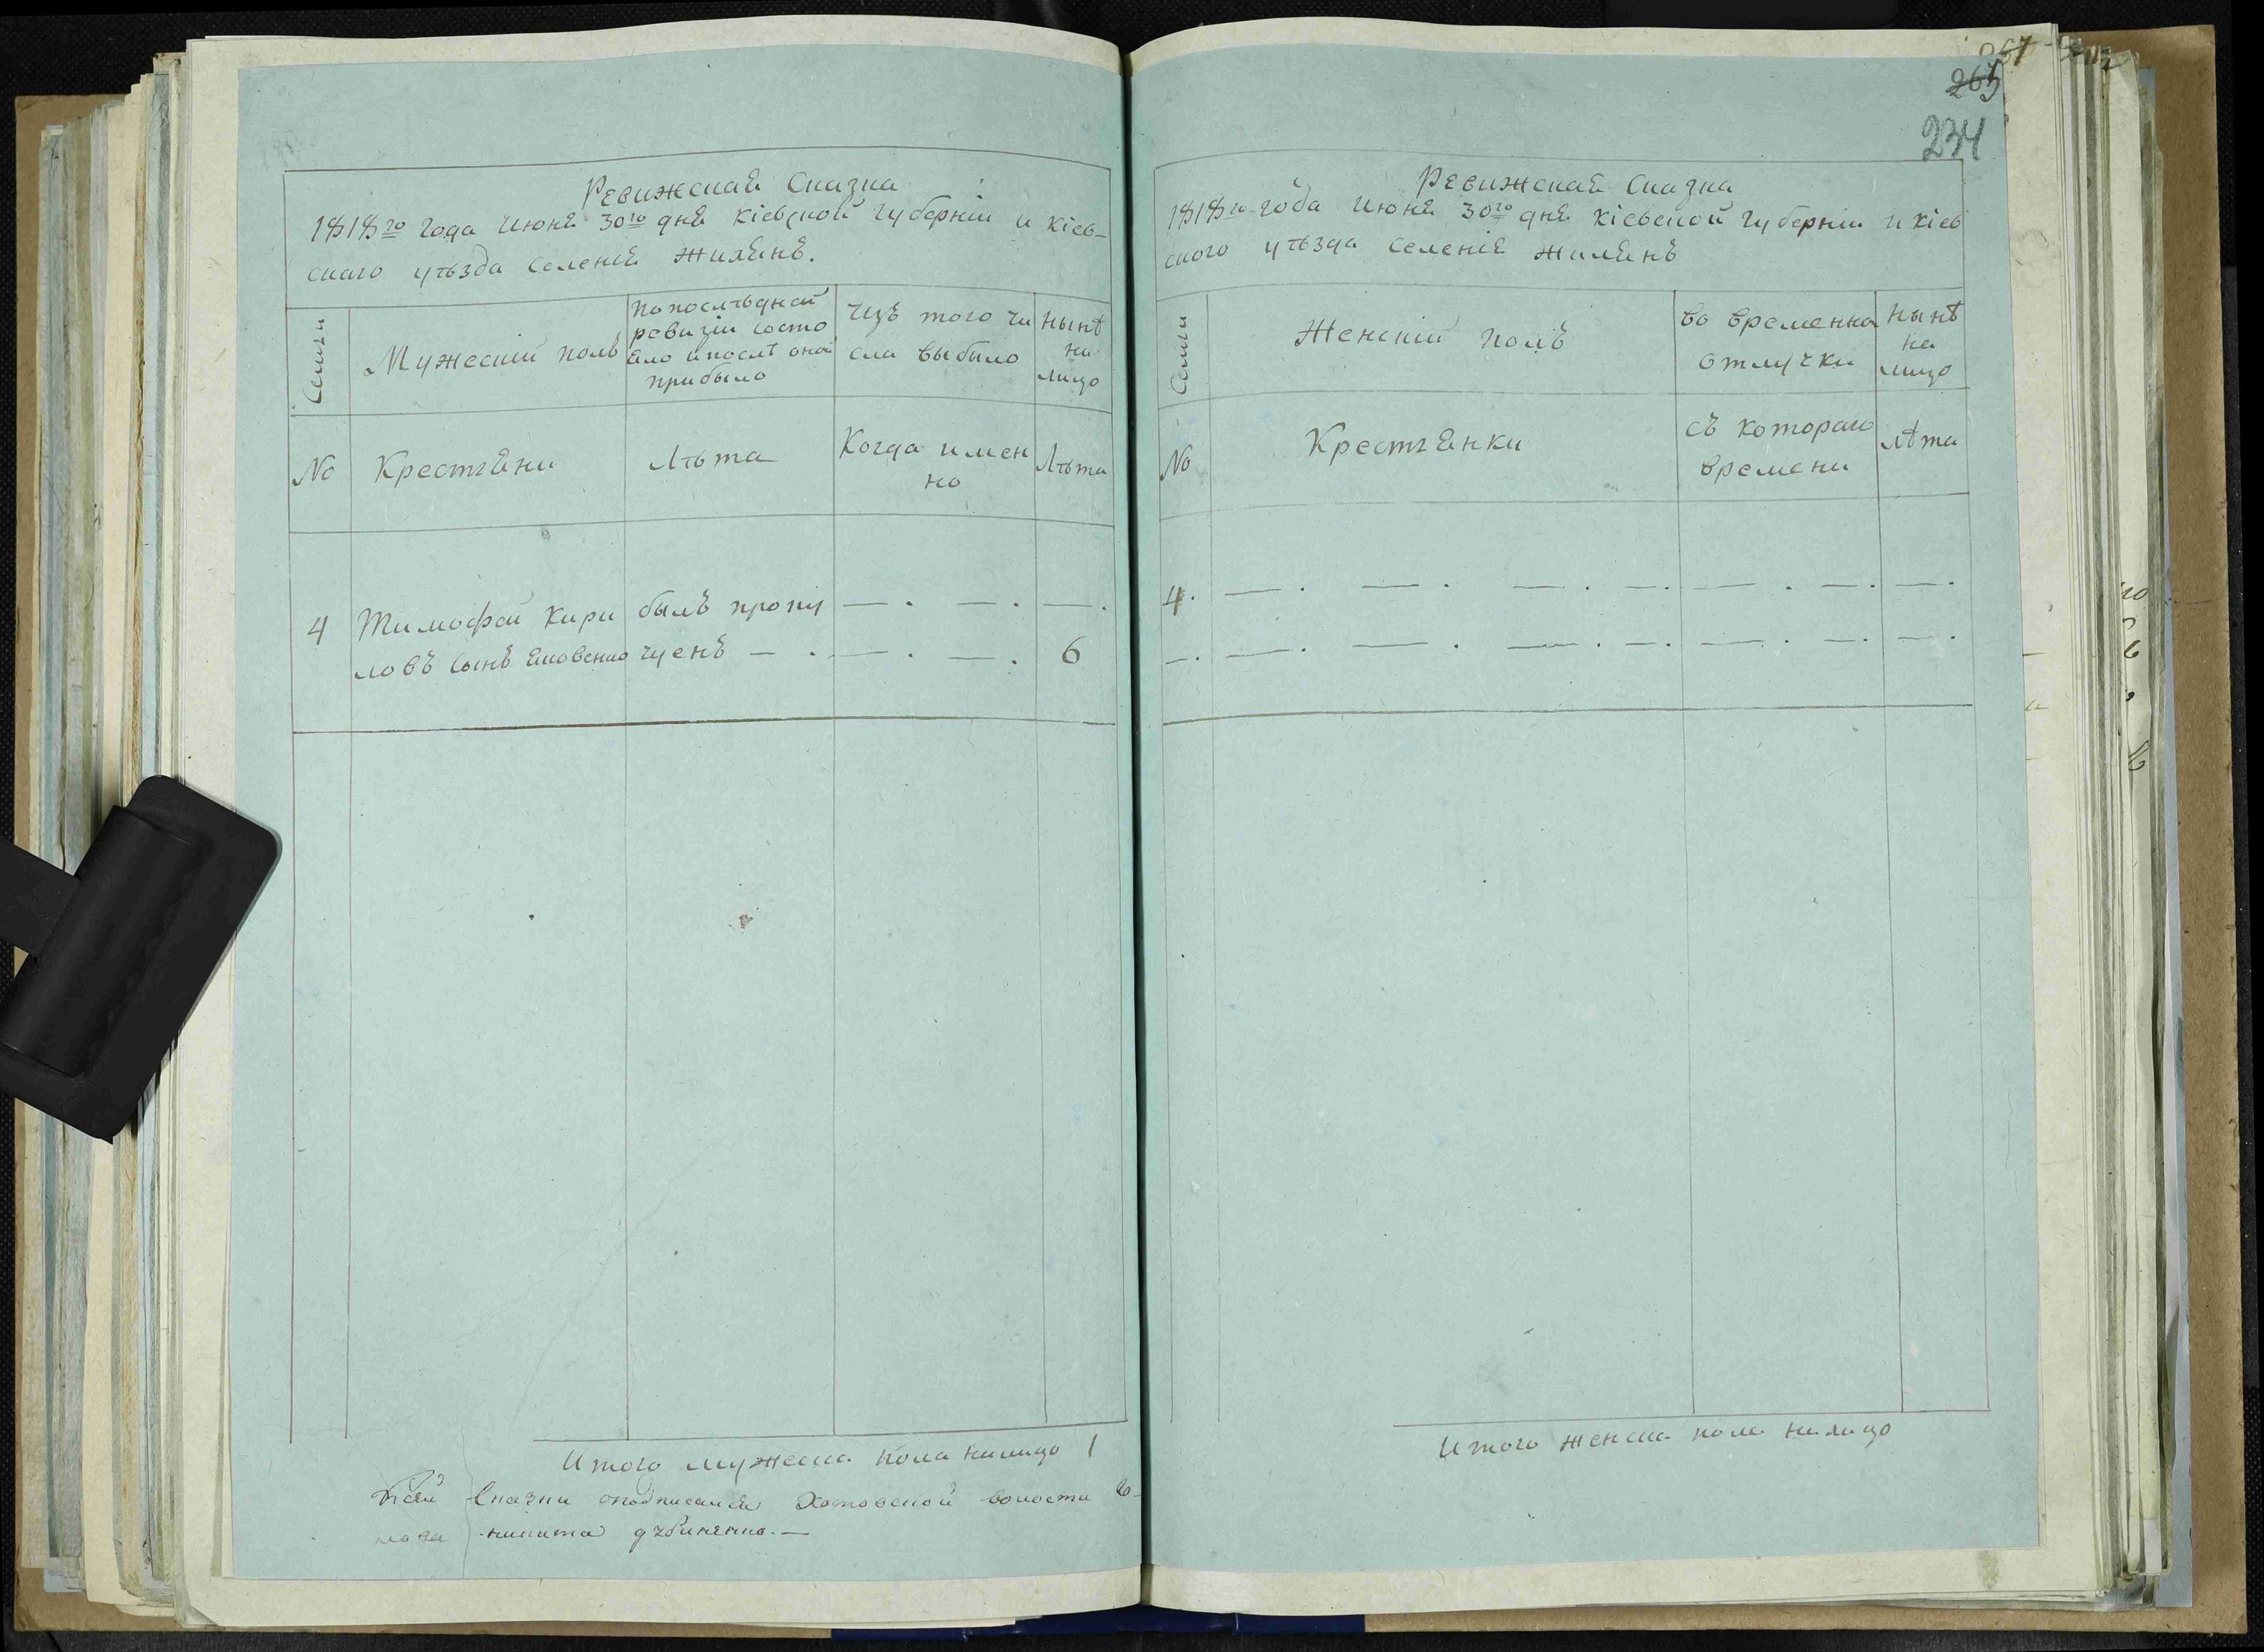 Ревижская Сказка
1818го года июня 30го дня кіевской губерніи и кіев-
скаго уѣзда селенія жилянъ.
Семьи
Мужескій полъ
по послѣдней
ревизіи состо
яло и послѣ оной
прибыло
изъ того чи
сла выбыло
нынѣ
на
лицо
№
Крестяни
Лѣта
Когда имен
но
Лѣта
4
Тимофей Кири
ловъ сынъ
былъ пропу
щенъ — .
— . — . — .
— . — . 6
Итого мужеска пола налицо 1
Сказки подписался Хотовской волости го-
лова никита
267
265
234
Ревижская Сказка
1818го года июня 30го дня кіевской губерніи и кіев
ского уѣзда селенія жилянъ
Семьи
Женскій полъ
во временна
отлучки
нынѣ
на
лицо
№
Крестянки
съ котораго
времени
лѣта
4. — . — . — . — . — . — . — .
— . — . — . — . — . — . — . — .
Итого женска пола налицо